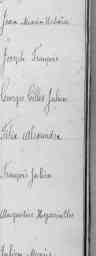 Jean Marie Victoire
Joseph François
Georges Gilles Julien
Félix Alexandre
François Julien
Augustine
Julien Marie